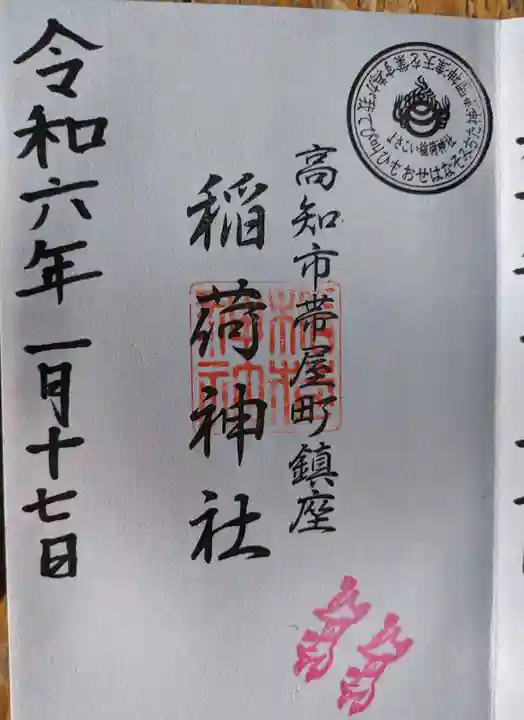 高知市帯屋町鎮座
稲荷神社
令和六年一月十七日
よさこい稲荷神社